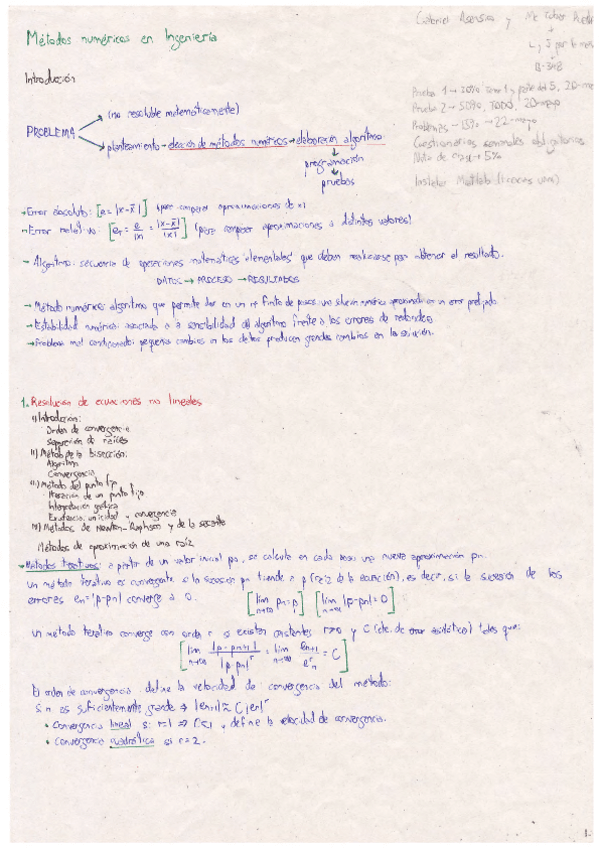 Métodos numéricos en Ingeniería
Gabriel Asensio y
L y J por la
B-348
Prueba 1 → 50% Tema 1 y parte del 5, 20-
Prueba 2 → 50%, TODO, 20-mayo
Problemas → 15% → 22-mayo
Cuestionarios semanales obligatorios
Nota de clase → 5%
Instalar Matlab
Introducción
PROBLEMA
(no resoluble matemáticamente)
planteamiento → elección de métodos numéricos → elaboración algoritmo
↓
programación
↓
pruebas
→ Error absoluto: [e = |x-x̄|] (para comparar aproximaciones de x)
→ Error relativo: [er = e/|x| = |x-x̄|/|x|] (para comparar aproximaciones a distintos valores)
→ Algoritmo: secuencia de operaciones matemáticas "elementales" que deben realizarse para obtener el resultado.
DATOS → PROCESO → RESULTADOS
→ Método numérico: algoritmo que permite dar en un nº finito de pasos, una solución numérica aproximada con un error prefijado.
→ Estabilidad numérica: asociado a la sensibilidad del algoritmo frente a los errores de redondeo
→ Problema mal condicionado: pequeños cambios en los datos producen grandes cambios en la solución.
1. Resolución de ecuaciones no lineales
I) Introducción:
Orden de convergencia
Separación de raíces
II) Método de la bisección:
Algoritmo
Convergencia
III) Método del punto fijo
Iteración de un punto fijo
Interpretación gráfica
Existencia, unicidad y convergencia
IV) Métodos de Newton-Raphson y de la secante
Métodos de aproximación de una raíz
→ Métodos iterativos: a partir de un valor inicial p0, se calcula en cada paso una nueva aproximación pn.
Un método iterativo es convergente si la sucesión pn tiende a p (raíz de la ecuación), es decir, si la sucesión de los
errores en=|p-pn| converge a 0. [lim n→∞ pn = p] [lim n→∞ |p-pn| = 0]
Un método iterativo converge con orden r si existen constantes r>0 y C (cte. de error asintótico) tales que:
[lim n→∞ |p-pn+1|/|p-pn|^r = lim n→∞ en+1/en^r = C]
El orden de convergencia define la velocidad de convergencia del método:
Si n es suficientemente grande → |en+1| ≈ C|en|^r
• Convergencia lineal si r=1 ⇒ C<1 y define la velocidad de convergencia.
• Convergencia cuadrática si r=2.
1.